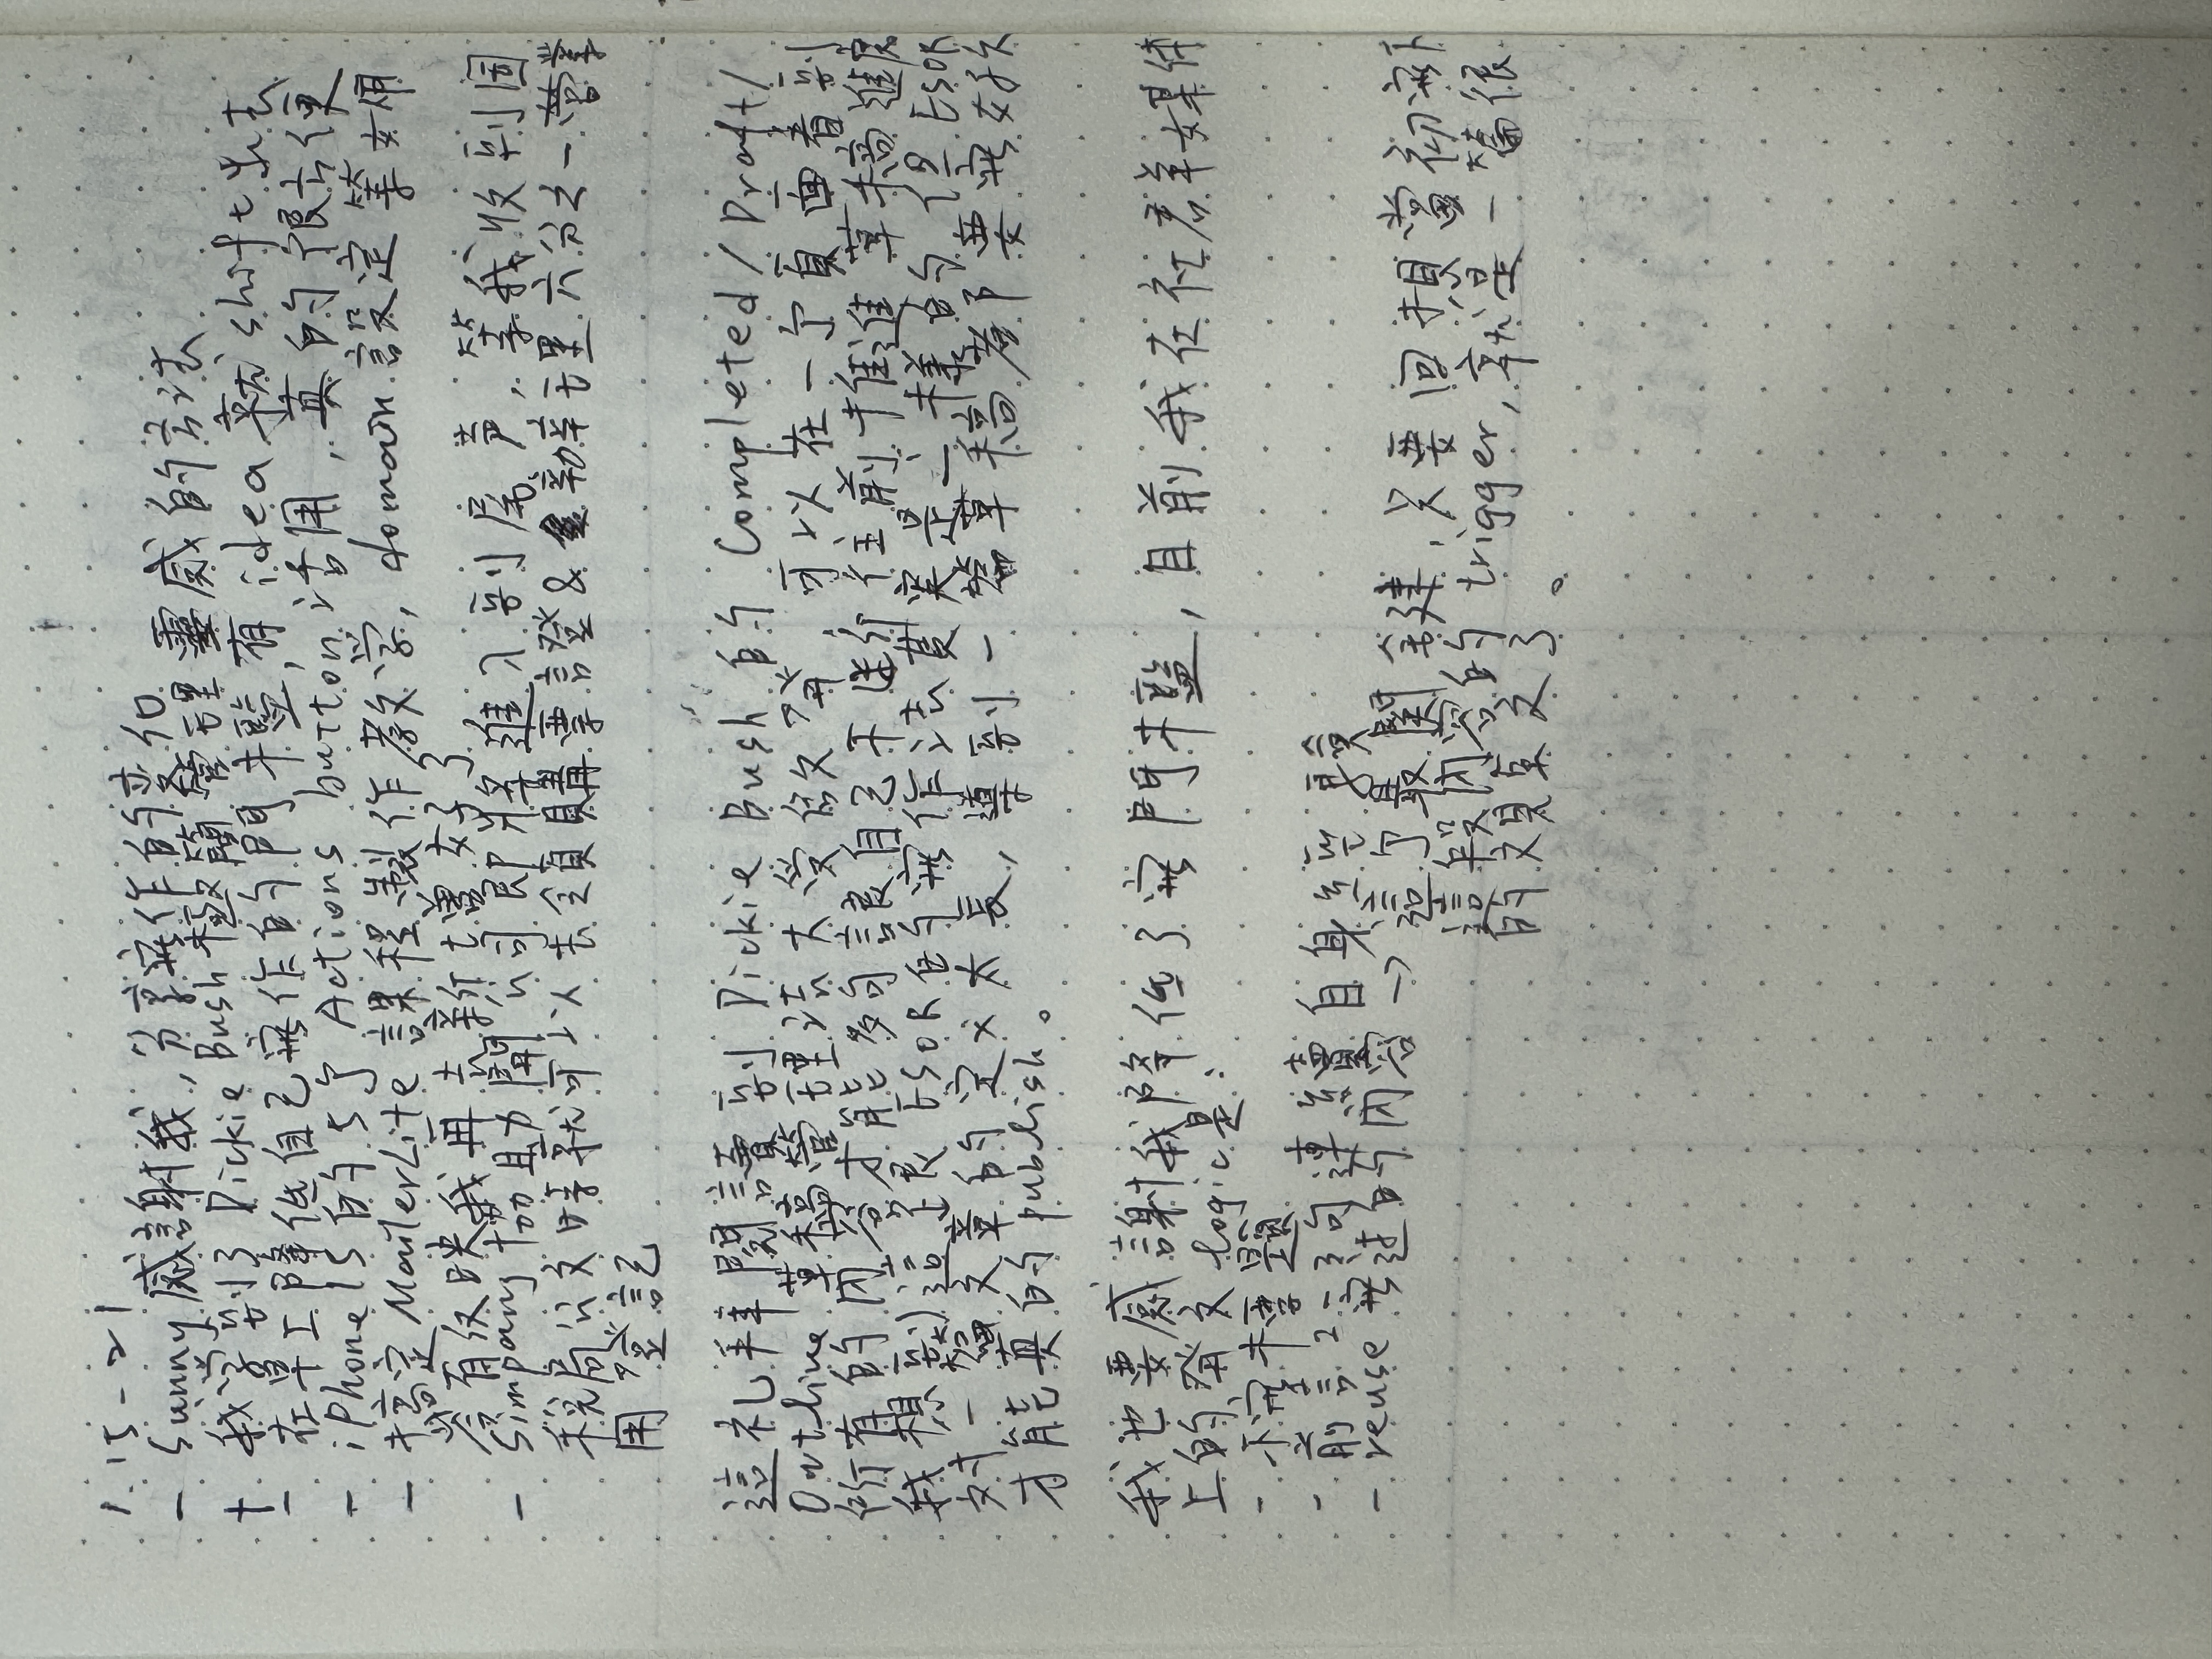 1.15-21
- Sunny 感謝我,分享寫作的变化
+ 我学到了 Dickie Bush 極簡管理靈感的方法
- 在早上降低自己寫作的門檻,有 idea 就 shift 出去
- iPhone 15 的 5个 Actions button 活用,真的很方便
- 搞定 MailerLite 課程製作教学, domain 設定等如用
有反映我再去新增好了
- Simpany 協助開公司即將進入到尾声,等我收到國
税局公文時就可以去領購票證 & 辦理六分之一營業
用登記
這礼拜閱讀到 Dickie Bush 的 Completed / Draft /
Outline 草稿管理法大受啟發,可以在一个頁面看到
所有的内容才能夠讓自己不断往前推進草稿進度
我想到這跟 ESOR 的寫作法其实是一樣的,但 ESOR
对一篇文章的定义太長,導到一篇草稿都要寫好久
才能真的 publish。
我也要感謝我降低了寫門檻,目前我在社群媒体
上的發文 logic 是:
- 不寫標題
- 前言 2-3句連續自身經驗
- reuse 寫过的内容 → 這个最関鍵,只要回想當初寫下
這段内容的 trigger,就是一篇很
的文了。